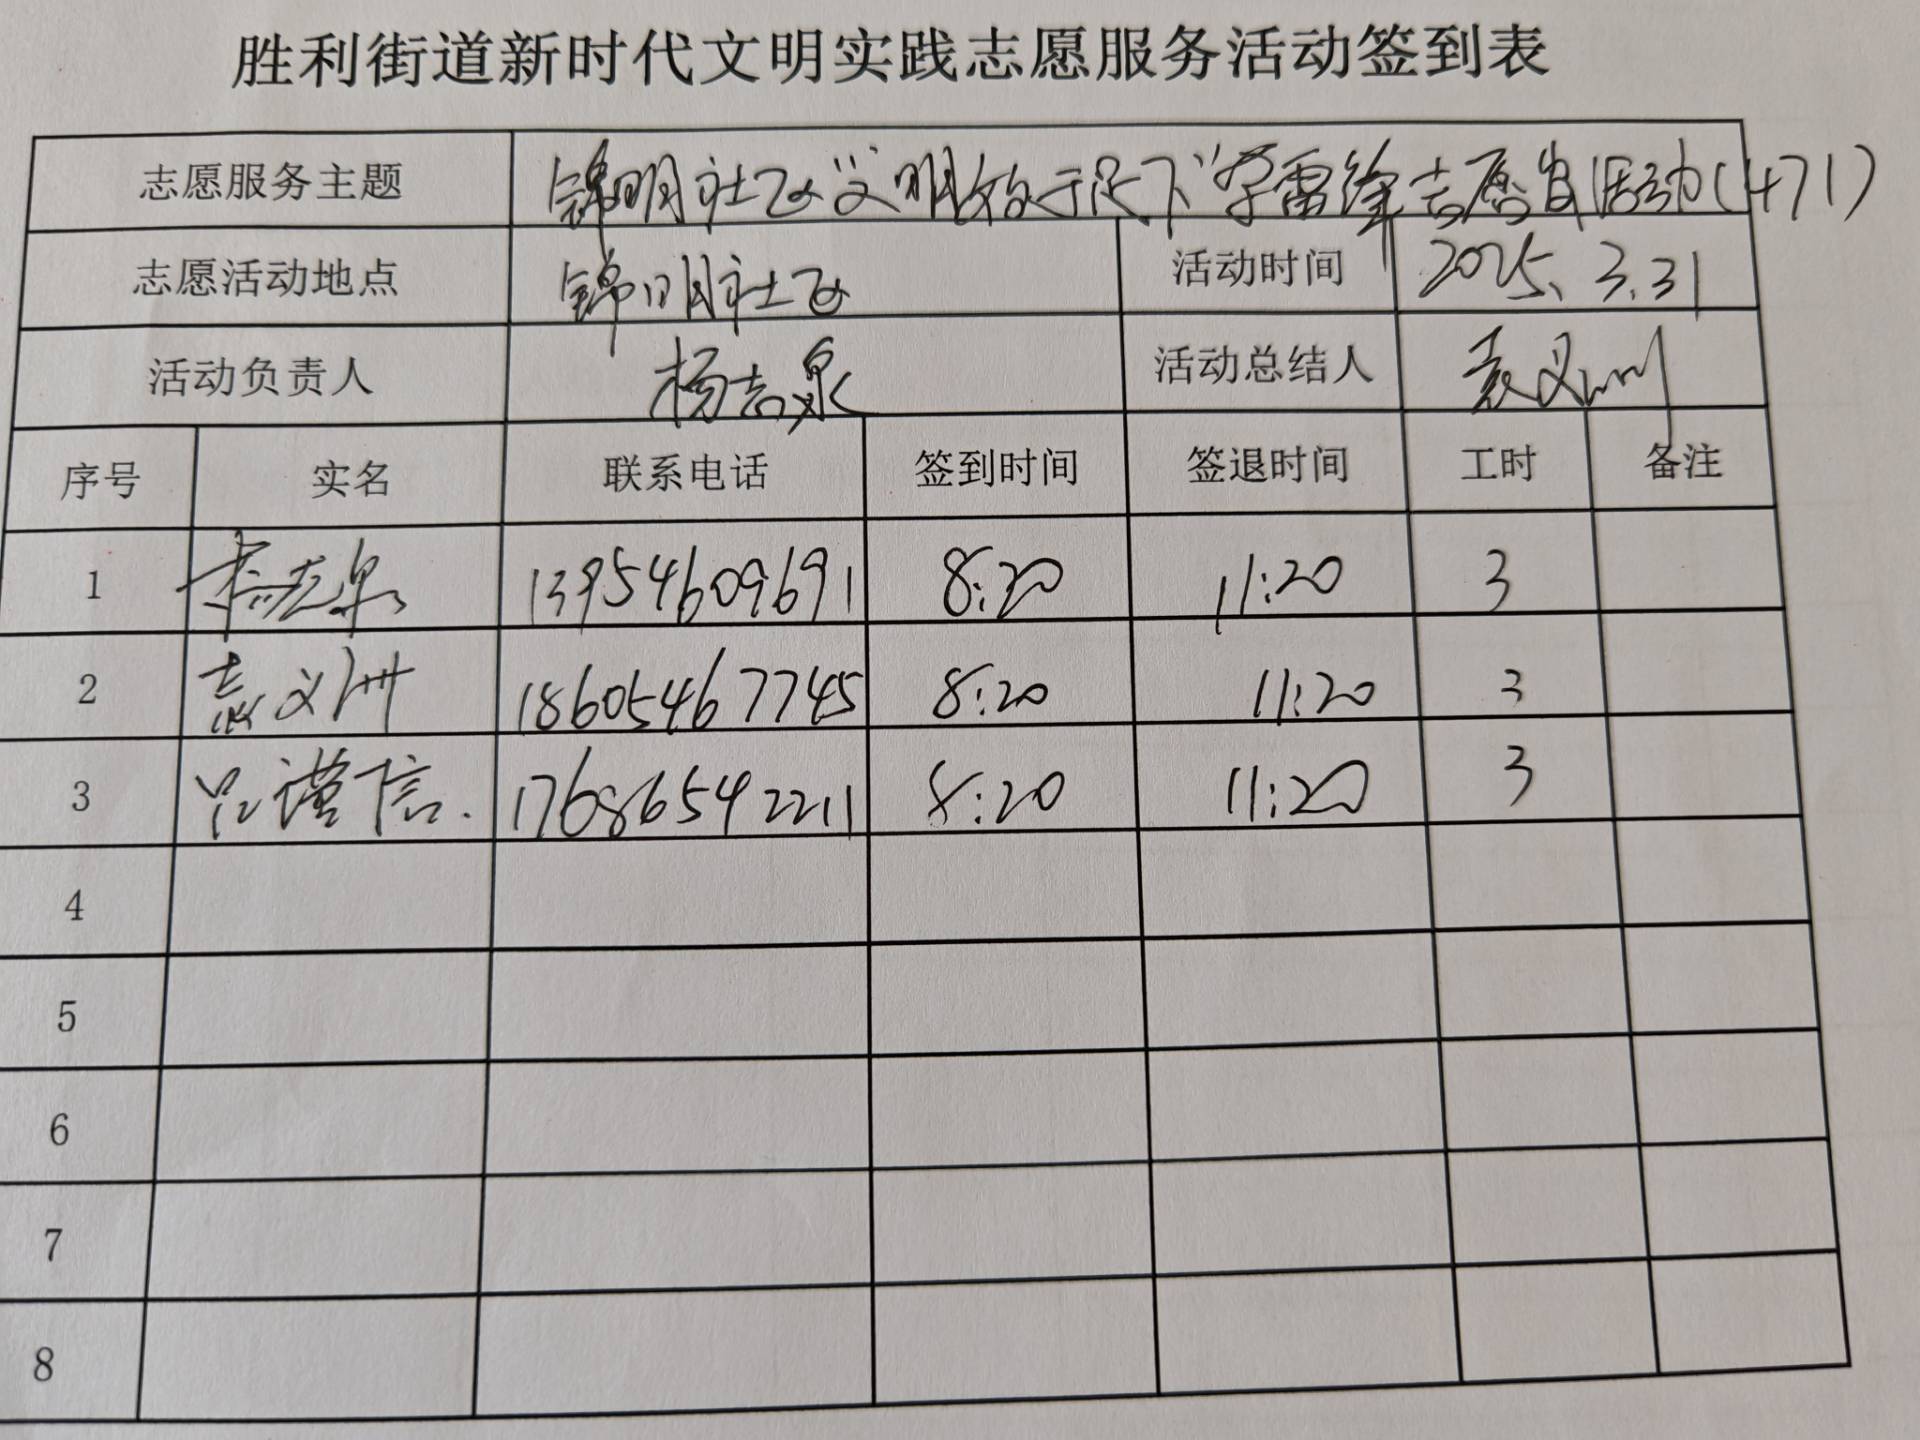 胜利街道新时代文明实践志愿服务活动签到表
志愿服务主题 锦明社区"文明始于足下"学雷锋志愿服活动(471)
志愿活动地点 锦明社区 活动时间 2025.3.31
活动负责人 杨志泉 活动总结人 袁义
序号 实名 联系电话 签到时间 签退时间 工时 备注
1 杨志泉 13954609691 8:20 11:20 3
2 袁义 18605467745 8:20 11:20 3
3 吕谨信. 17686542211 8:20 11:20 3
4
5
6
7
8